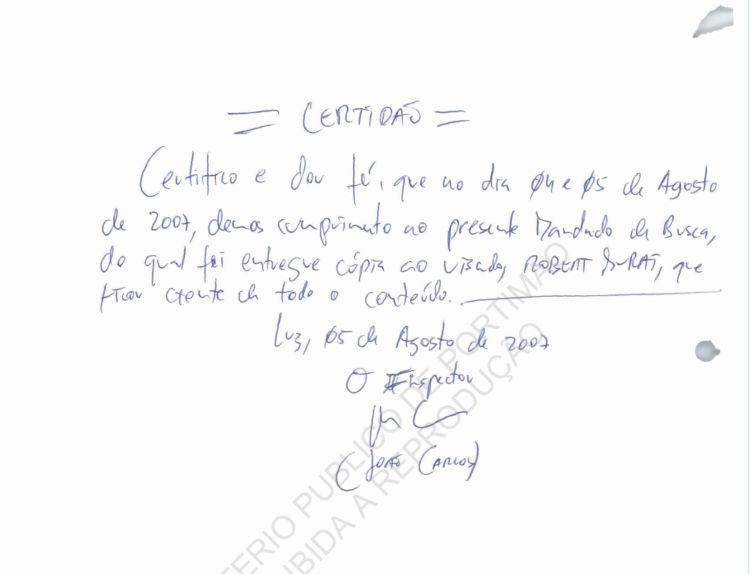 = CERTIDÃO =
Certifico e dou fé, que no dia 04 e 05 de Agosto
de 2007, demos cumprimento ao presente Mandado de Busca,
do qual foi entregue cópia ao visado, ROBERT MURAT, que
ficou ciente de todo o conteúdo.
Luz, 05 de Agosto de 2007
O Inspector
(João Carlos)
MINISTÉRIO PUBLICO DE PORTIMÃO
PROIBIDA A REPRODUÇÃO